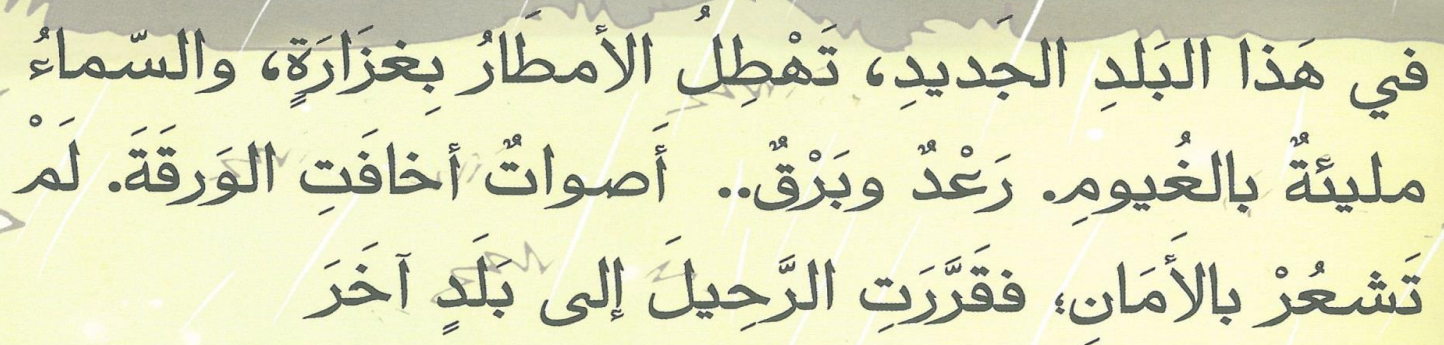 في هَذا البَلدِ الجَديدِ، تَهْطِلُ الأمطَارُ بِغزَارَةٍ، والسّماءُ
مليئةٌ بالغُيومِ. رَعْدٌ وبَرْقٌ.. أَصواتٌ أخافَتِ الوَرقَةَ. لَمْ
تَشعُرْ بالأَمَانِ؛ فقَرَّرَتِ الرَّحِيلَ إلى بَلَدٍ آخَرَ